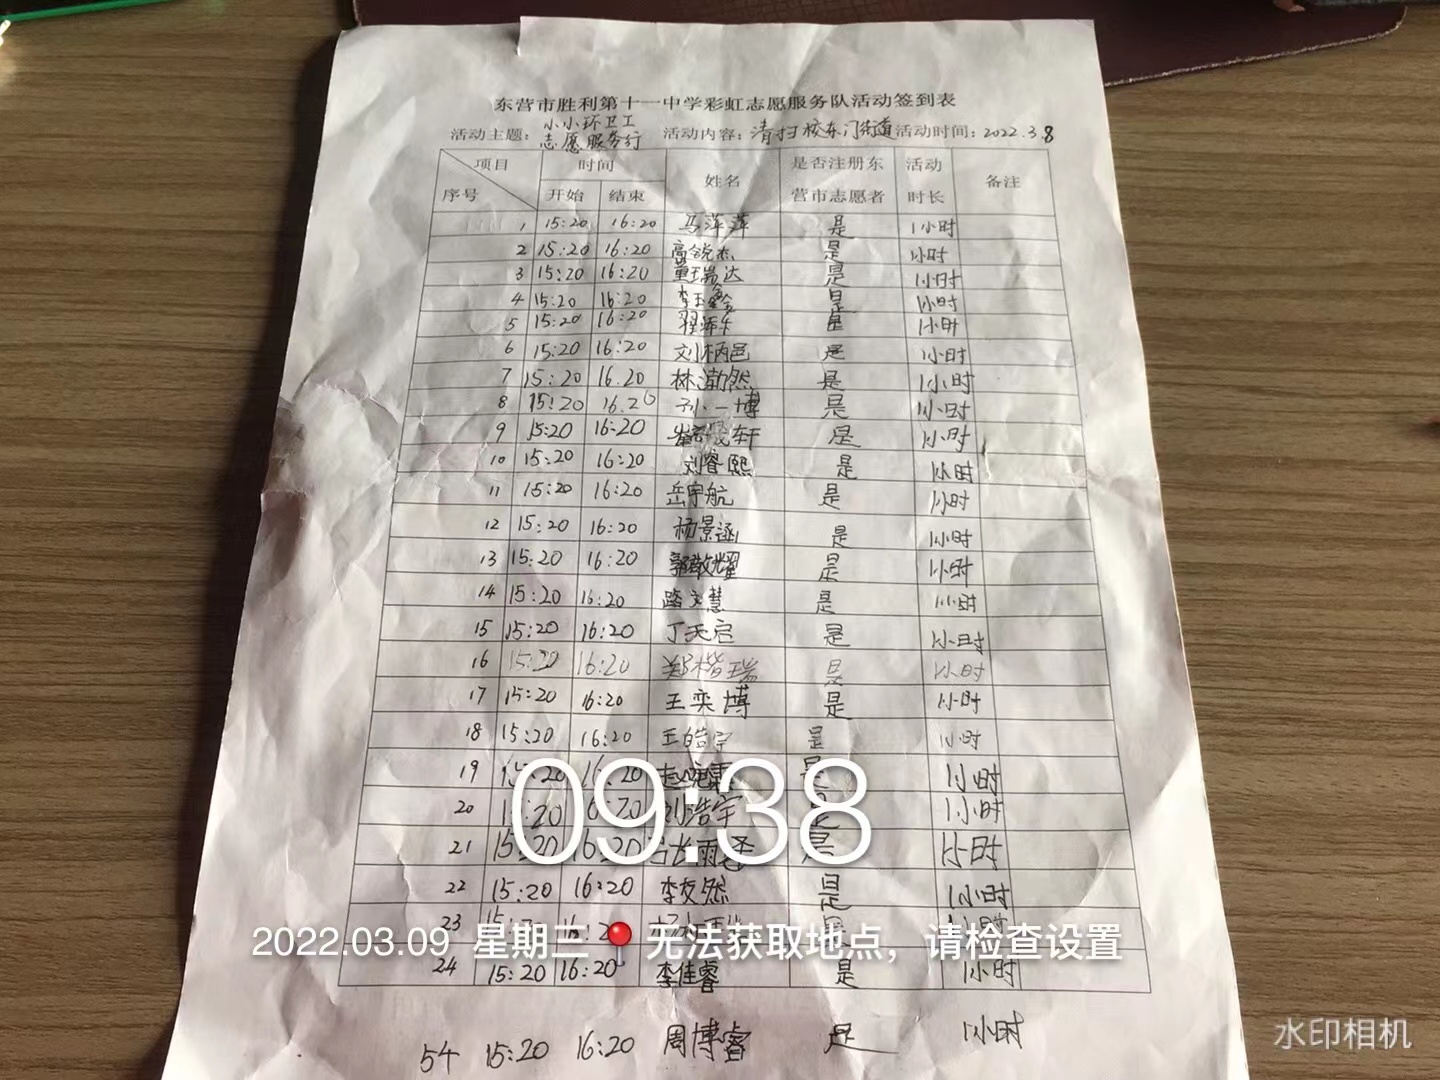 东营市胜利第十一中学彩虹志愿服务队活动签到表
活动主题：小小环卫工志愿服务行 活动内容：清扫校东门街道 活动时间：2022.3.8
项目 时间 姓名 是否注册东营市志愿者 活动时长 备注
序号 开始 结束
1 15:20 16:20 马萍萍 是 1小时
2 15:20 16:20 高锐杰 是 1小时
3 15:20 16:20 董瑞达 是 1小时
4 15:20 16:20 李玉鑫 是 1小时
5 15:20 16:20 是 1小时
6 15:20 16:20 刘柄邑 是 1小时
7 15:20 16:20 林渤然 是 1小时
8 15:20 16:20 孙一博 是 1小时
9 15:20 16:20 轩 是 1小时
10 15:20 16:20 刘睿熙 是 1小时
11 15:20 16:20 岳宇航 是 1小时
12 15:20 16:20 杨景涵 是 1小时
13 15:20 16:20 郭敬耀 是 1小时
14 15:20 16:20 路文慧 是 1小时
15 15:20 16:20 丁天启 是 1小时
16 15:20 16:20 郑楷瑞 是 1小时
17 15:20 16:20 王奕博 是 1小时
18 15:20 16:20 王皓宇 是 1小时
19 15:20 16:20 是 1小时
20 15:20 16:20 刘浩宇 是 1小时
21 15:20 16:20 雨 是 1小时
22 15:20 16:20 李奕然 是 1小时
23 15:20 16:20 是 1小时
24 15:20 16:20 李佳睿 是 1小时
54 15:20 16:20 周博睿 是 1小时
09:38
2022.03.09 星期三 无法获取地点，请检查设置
水印相机